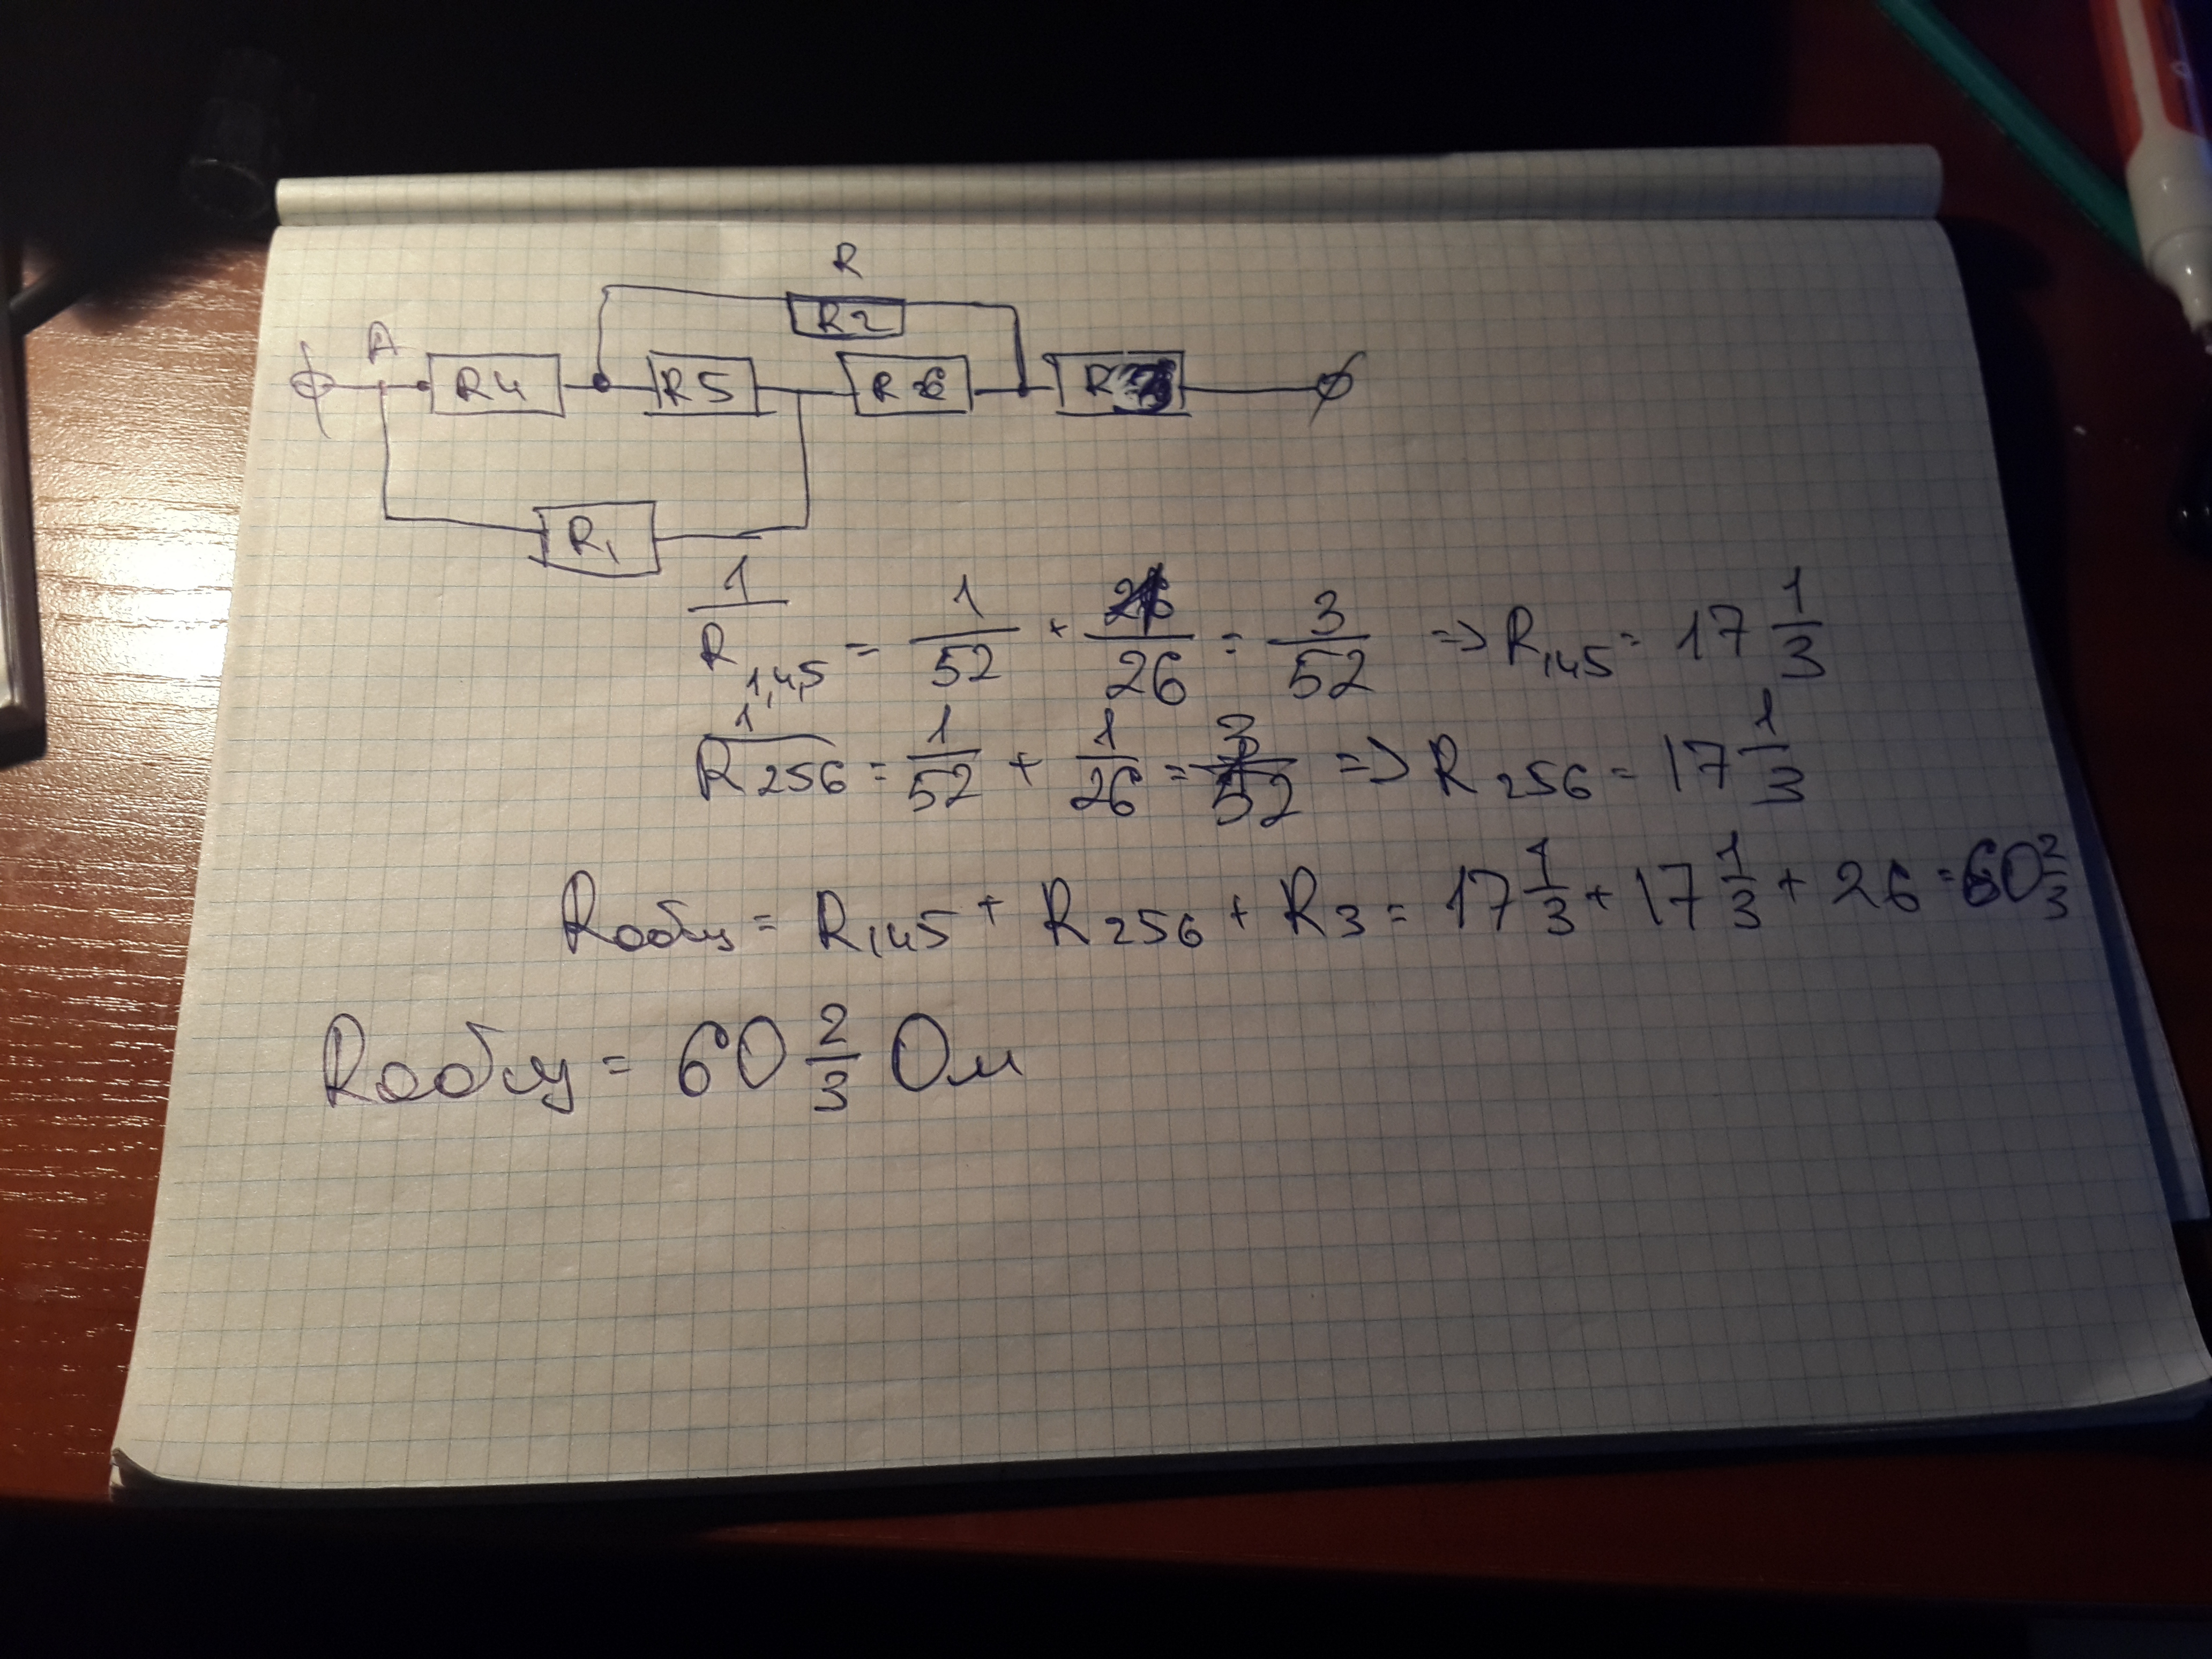 R
R2
A
R4 R5 R6
R1
1/R1,4,5 = 1/52 + 1/26 = 3/52 => R145 = 17 1/3
1/R256 = 1/52 + 1/26 = 3/52 => R256 = 17 1/3
Rобщ = R145 + R256 + R3 = 17 1/3 + 17 1/3 + 26 = 60 2/3
Rобщ = 60 2/3 Ом